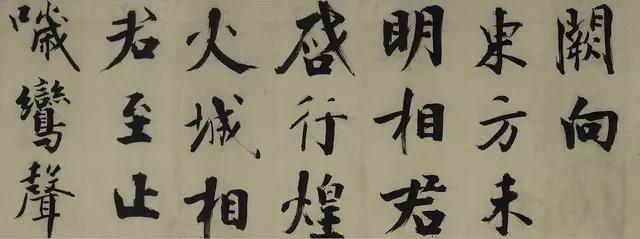 闕向
東方未
明相君
启行煌
火城相
君至止
噦鸞聲